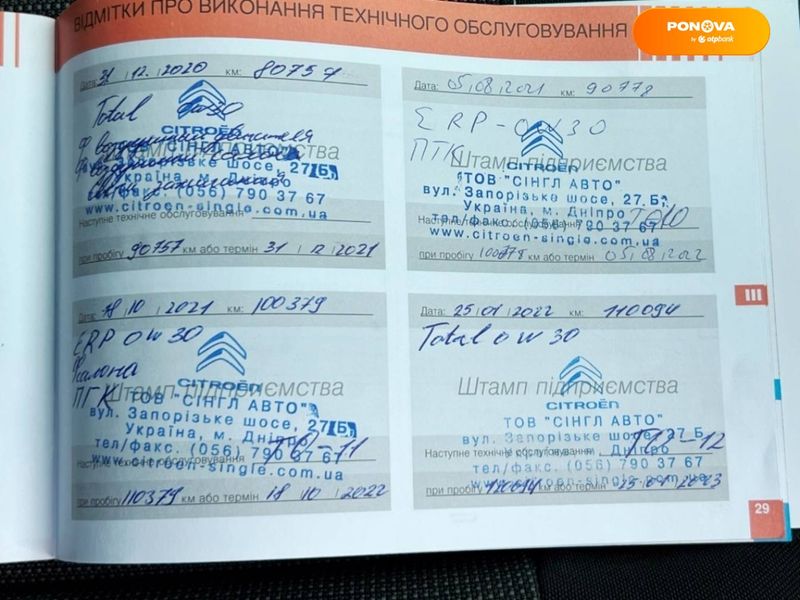 ВІДМІТКИ ПРО ВИКОНАННЯ ТЕХНІЧНОГО ОБСЛУГОВУВАННЯ
PONOVA
by otpbank
Дата: 31 12 2020 км: 80757
Total 0w30
CITROËN
ТОВ "СІНГЛ АВТО"
Штамп підприємства
вул. Запорізьке шосе, 27 Б,
Україна, м. Дніпро
тел/факс. (056) 790 37 67
www.citroen-single.com.ua
Наступне технічне обслуговування
при пробігу 90757 км або термін 31 12 2021
Дата: 05 08 2021 км: 90778
ERP-0W30
ПГК
CITROËN
Штамп підприємства
ТОВ "СІНГЛ АВТО"
вул. Запорізьке шосе, 27 Б,
Україна, м. Дніпро
Наступне технічне обслуговування
тел/факс. (056) 790 37 67
www.citroen-single.com.ua
при пробігу 100778 км або термін 05 08 2022
Дата: 18 10 2021 км: 100379
ERP 0W30
ф салона
ПГК
CITROËN
Штамп підприємства
ТОВ "СІНГЛ АВТО"
вул. Запорізьке шосе, 27 Б,
Україна, м. Дніпро
тел/факс. (056) 790 37 67
Наступне технічне обслуговування
www.citroen-single.com.ua
при пробігу 110379 км або термін 18 10 2022
Дата: 25 01 2022 км: 110094
Total 0w30
CITROËN
Штамп підприємства
ТОВ "СІНГЛ АВТО"
вул. Запорізьке шосе, 27 Б,
Україна, м. Дніпро
Наступне технічне обслуговування
тел/факс. (056) 790 37 67
www.citroen-single.com.ua
при пробігу 120094 км або термін 25 01 2023
III
29